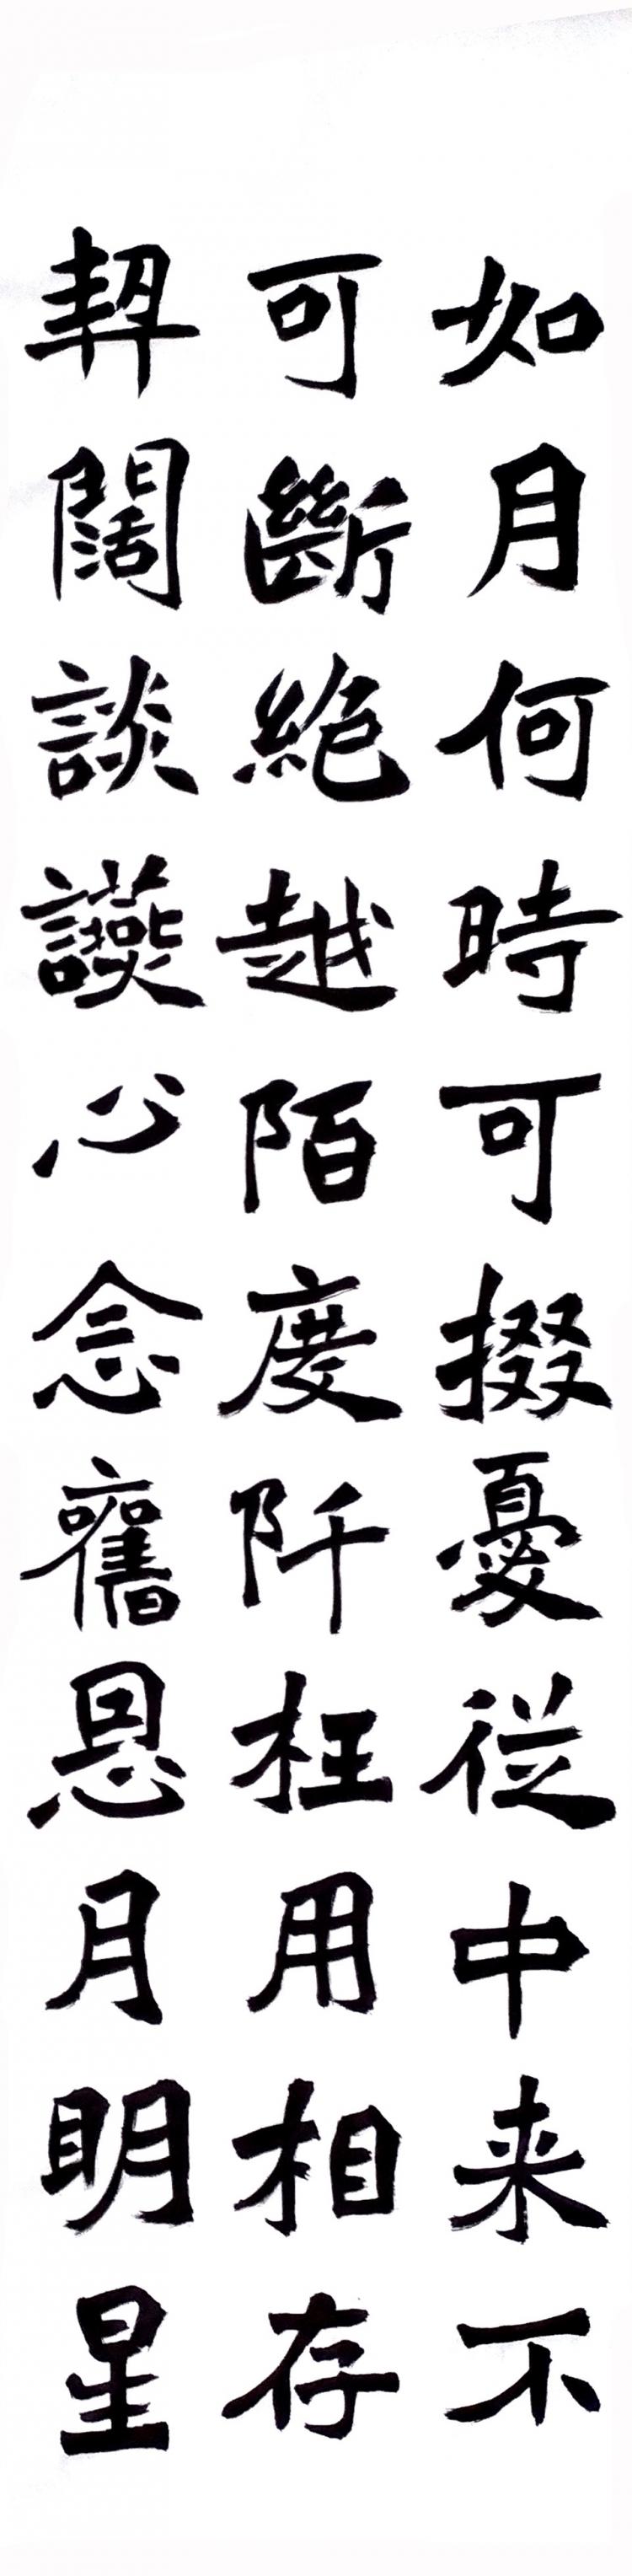 如月何時可掇憂從中来不
可斷絶越陌度阡枉用相存
契闊談讌心念舊恩月明星